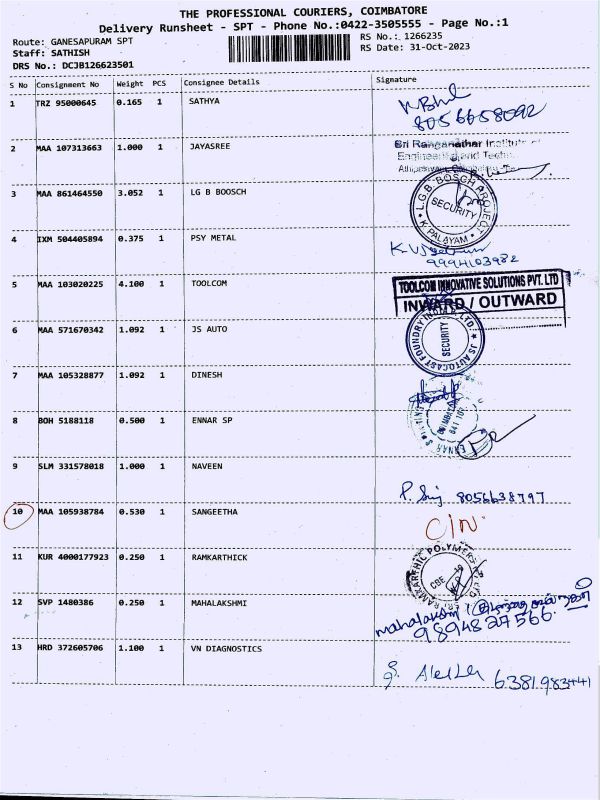 THE PROFESSIONAL COURIERS, COIMBATORE
Delivery Runsheet - SPT - Phone No.:0422-3505555 - Page No.:1
Route: GANESAPURAM SPT RS No.: 1266235
Staff: SATHISH RS Date: 31-Oct-2023
DRS No.: DCJB126623501
S No Consignment No Weight PCS Consignee Details Signature
1 TRZ 95000645 0.165 1 SATHYA
8056658092
2 MAA 107313663 1.000 1 JAYASREE
Sri Ranganathar Institute of
Engineering and Techn
3 MAA 861464550 3.052 1 LG B BOOSCH
L.G.B. BOSCH PROJECT
SECURITY
K. PALAYAM
4 IXM 504405894 0.375 1 PSY METAL
9994103982
5 MAA 103020225 4.100 1 TOOLCOM
TOOLCOM INNOVATIVE SOLUTIONS PVT. LTD
INWARD / OUTWARD
6 MAA 571670342 1.092 1 JS AUTO
JS AUTOCAST FOUNDRY INDIA P. LTD.
SECURITY
7 MAA 105328877 1.092 1 DINESH
8 BOH 5188118 0.500 1 ENNAR SP
9 SLM 331578018 1.000 1 NAVEEN
8056638797
10 MAA 105938784 0.530 1 SANGEETHA
C/N
11 KUR 4000177923 0.250 1 RAMKARTHICK
12 SVP 1480386 0.250 1 MAHALAKSHMI
mahalakshmi
9894827566
13 HRD 372605706 1.100 1 VN DIAGNOSTICS
6381983441